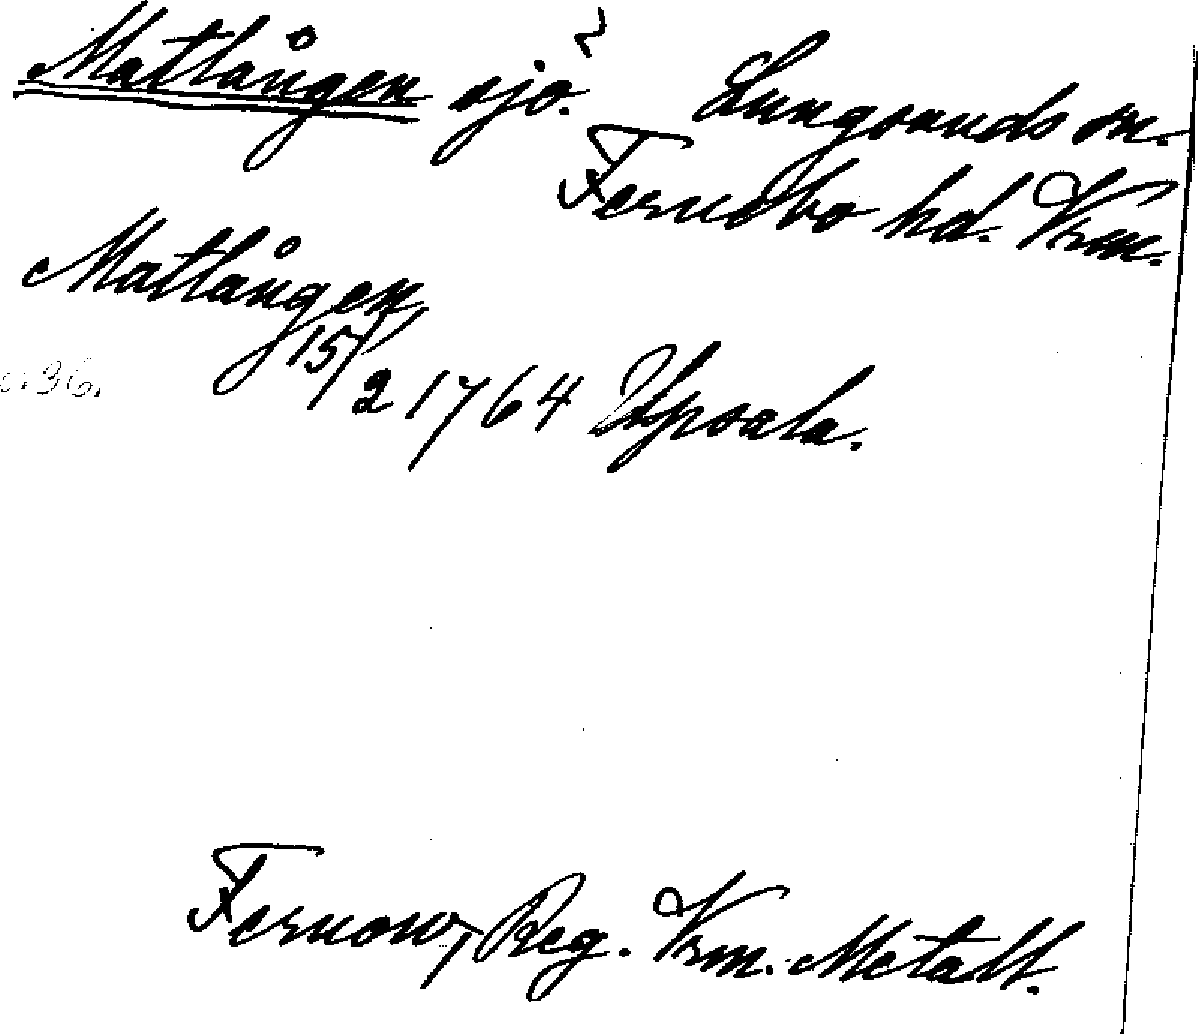 Matlången sjö. Lungsunds sn.
Fernebo hd. Vrm.
Matlången
15/2 1764 Upsala.
Fernow, Reg. Vrm. Metall.